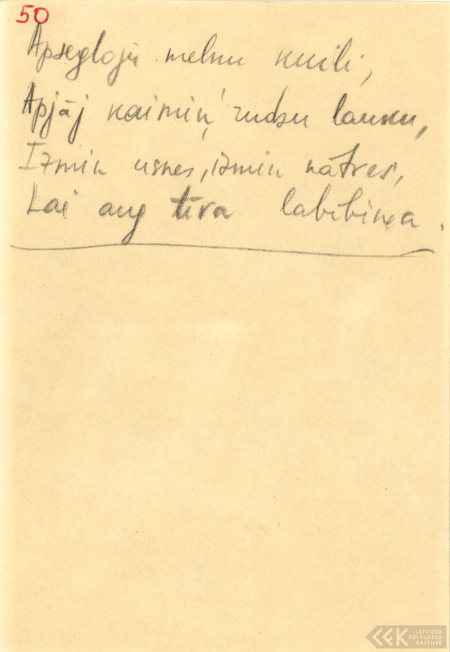 50
Apsegloju melnu kuili,
Apjāj kaimiņ' rudzu lauku,
Izmin usnes, izmin nātres,
Lai aug tīra labībiņa.
LATVIEŠU
FOLKLORAS
KRĀTUVE